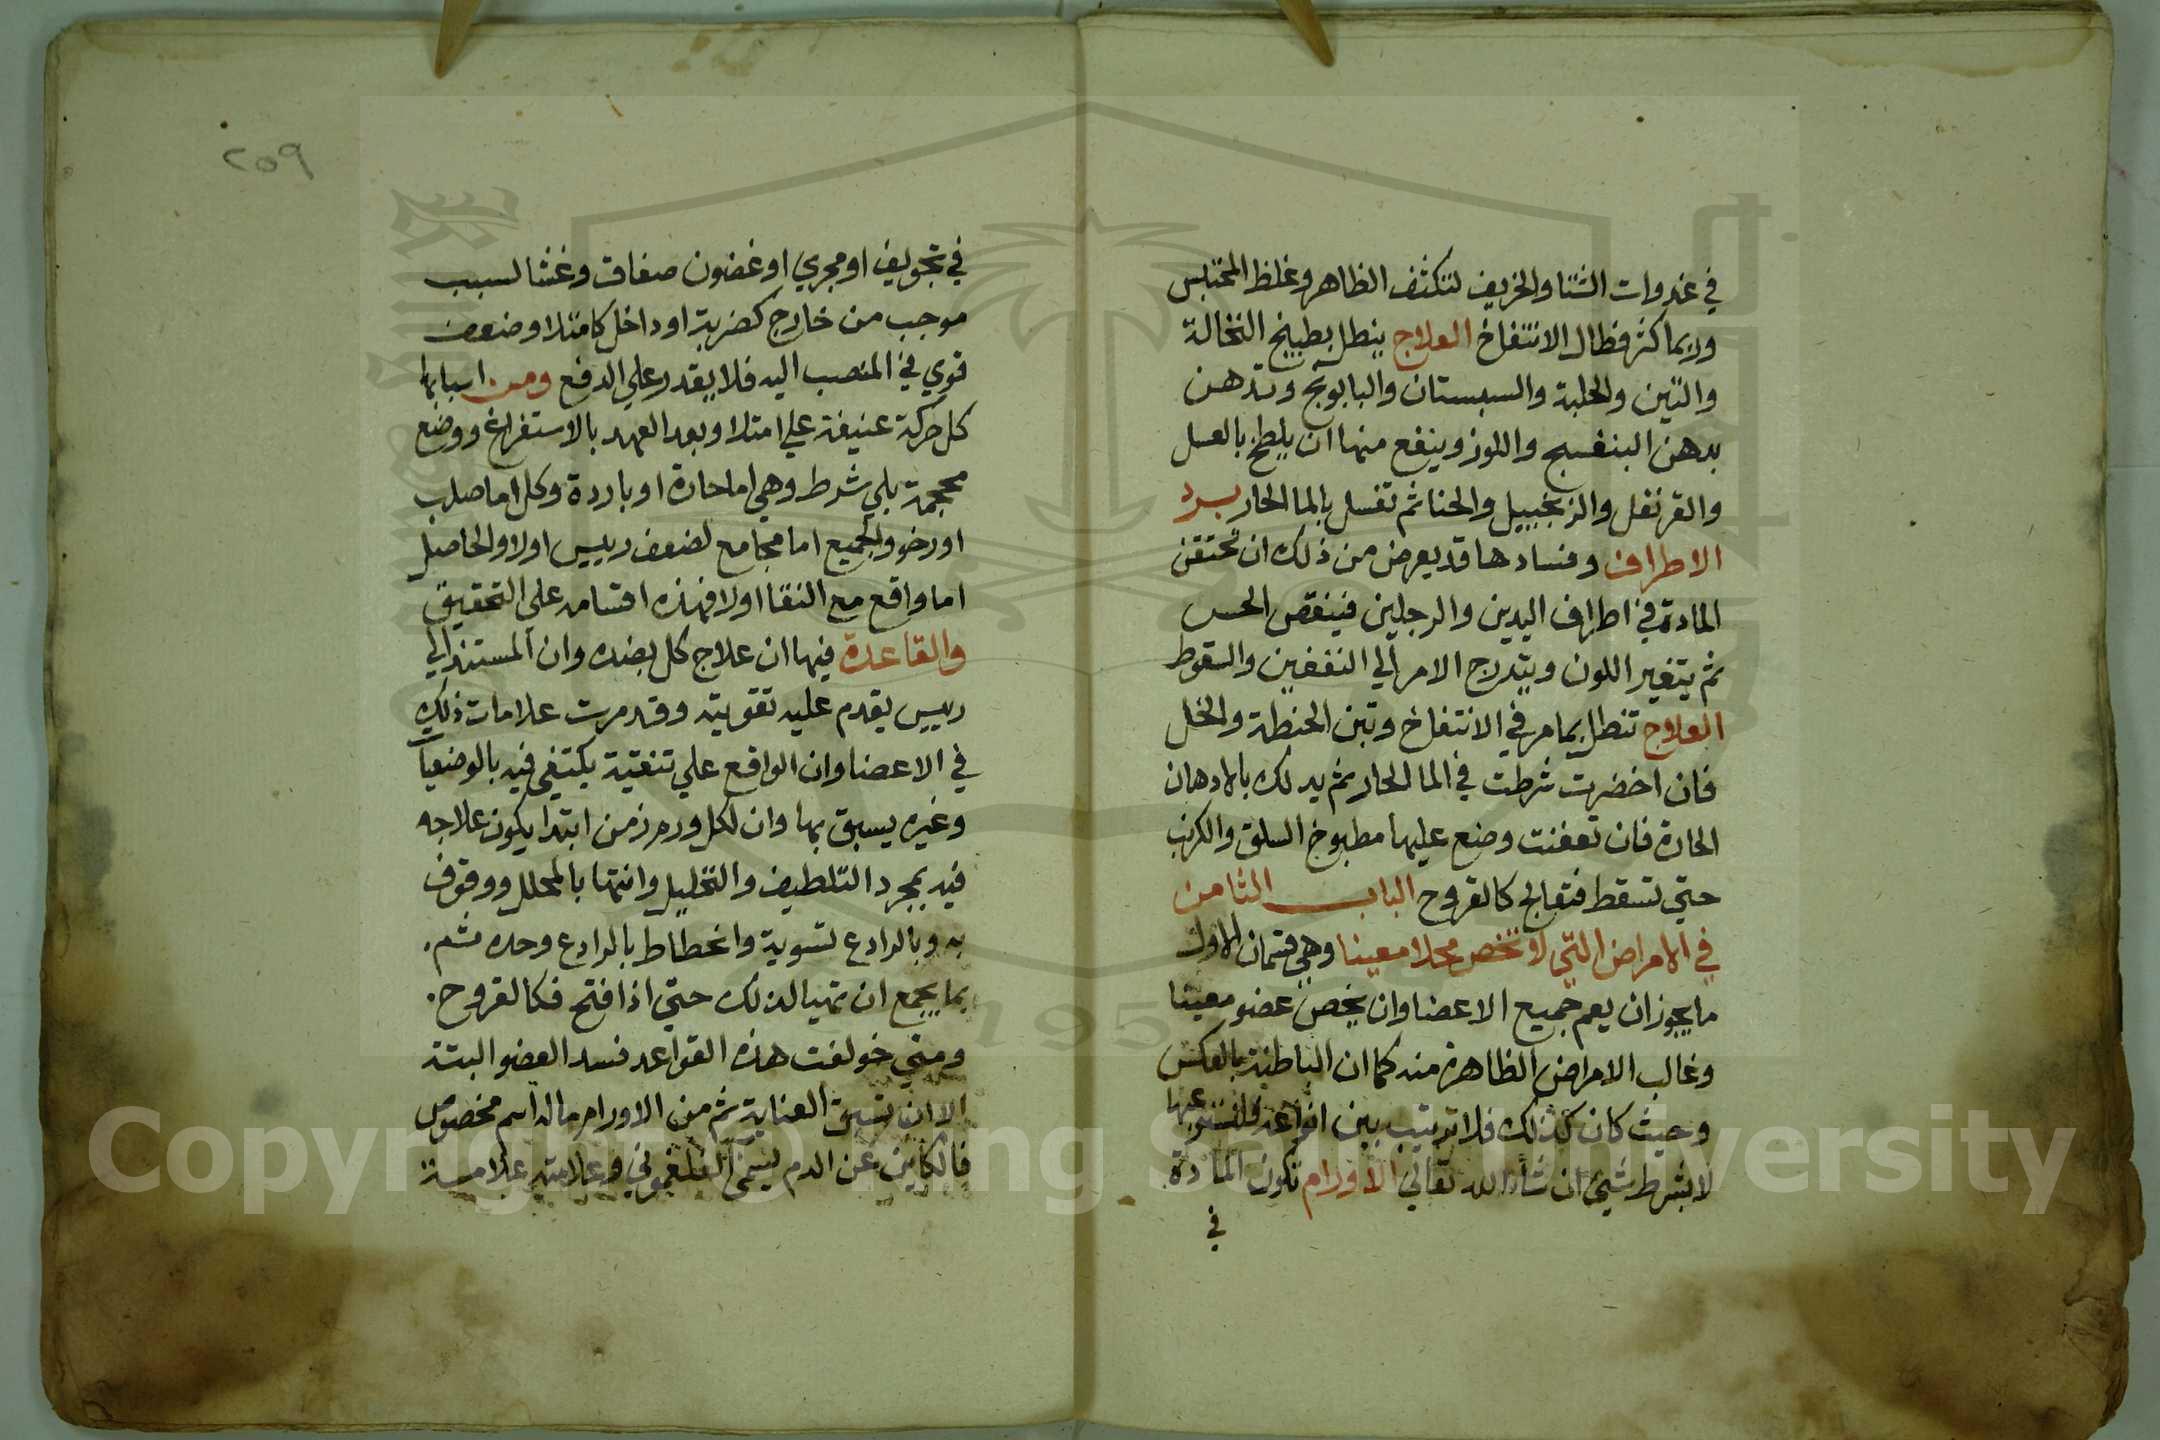 في غدوات الشتا والخريف لتكثف الظاهر وغلظ المحتبس
وربما كثر فطال الانتفاخ العلاج ينطل بطبيخ النخالة
والتين والحلبة والسبستان والبابونج وتدهن
بدهن البنفسج واللوز وينفع منها ان يلطخ بالعسل
والقرنفل والزنجبيل والحنا ثم تغسل بالما الحار برد
الاطراف وفسادها قد يعرض من ذلك ان تحتقن
المادة في اطراف اليدين والرجلين فينقص الحس
ثم يتغير اللون ويتدرج الامر الي التعفين والسقوط
العلاج تنطل بما مر في الانتفاخ وتبن الحنطة والخل
فان اخضرت شرطت في الما الحار ثم يدلك بالادهان
الحارة فان تعفنت وضع عليها مطبوخ السلق والكرنب
حتي تسقط فتعالج كالقروح الباب الثامن
في الامراض التي لا تخص محلا معينا وهي قسمان الاول
ما يجوز ان يعم جميع الاعضا وان يخص عضو معينا
وغالب الامراض الظاهرة منه كما ان الباطنة بالعكس
وحيث كان كذلك فلا ترتيب بين انواعه عنها
لا بشرط شي ان شاء الله تعالي الاورام تكون المادة
في
٢٥٩
في تجويف او مجري او غضون صفاق وغشا لسبب
موجب من خارج كضربة او داخل كامتلا وضعف
قوي في المنصب اليه فلا يقدر علي الدفع ومن اسبابها
كل حركة عنيفة علي امتلا وبعد العهد بالاستفراغ ووضع
محجمة بلي شرط وهي اما حارة او باردة وكل اما صلب
او رخو والجميع اما مجامع لضعف رييس اولا والحاصل
اما واقع مع النقا اولا فهذه اقسامه علي التحقيق
والقاعدة فيها ان علاج كل بضده وان المستند الي
رييس يقدم عليه تقويته وقد مرت علامات ذلك
في الاعضا وان الواقع علي تنقية يكتفي فيه بالوضعيات
وغيره يسبق بها وان لكل ورم زمن ابتدا يكون علاجه
فيه بمجرد التلطيف والتحليل وانتها بالمحلل ووقوف
به وبالرادع لتسوية وانحطاط بالرادع وحده ثم
بما يجمع ان تهيا لذلك حتي اذا فتح فكالقروح
ومتي خولفت هذه القواعد فسد العضو البتة
الا ان تسبق العناية ثم من الاورام ما له اسم مخصوص
فالكاين عن الدم يسمي الفلغموني وعلامته علامة
Copyright © King Saud University
1957